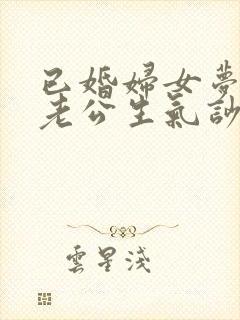 已婚婦女夢
老公生氣訟
雲星淺